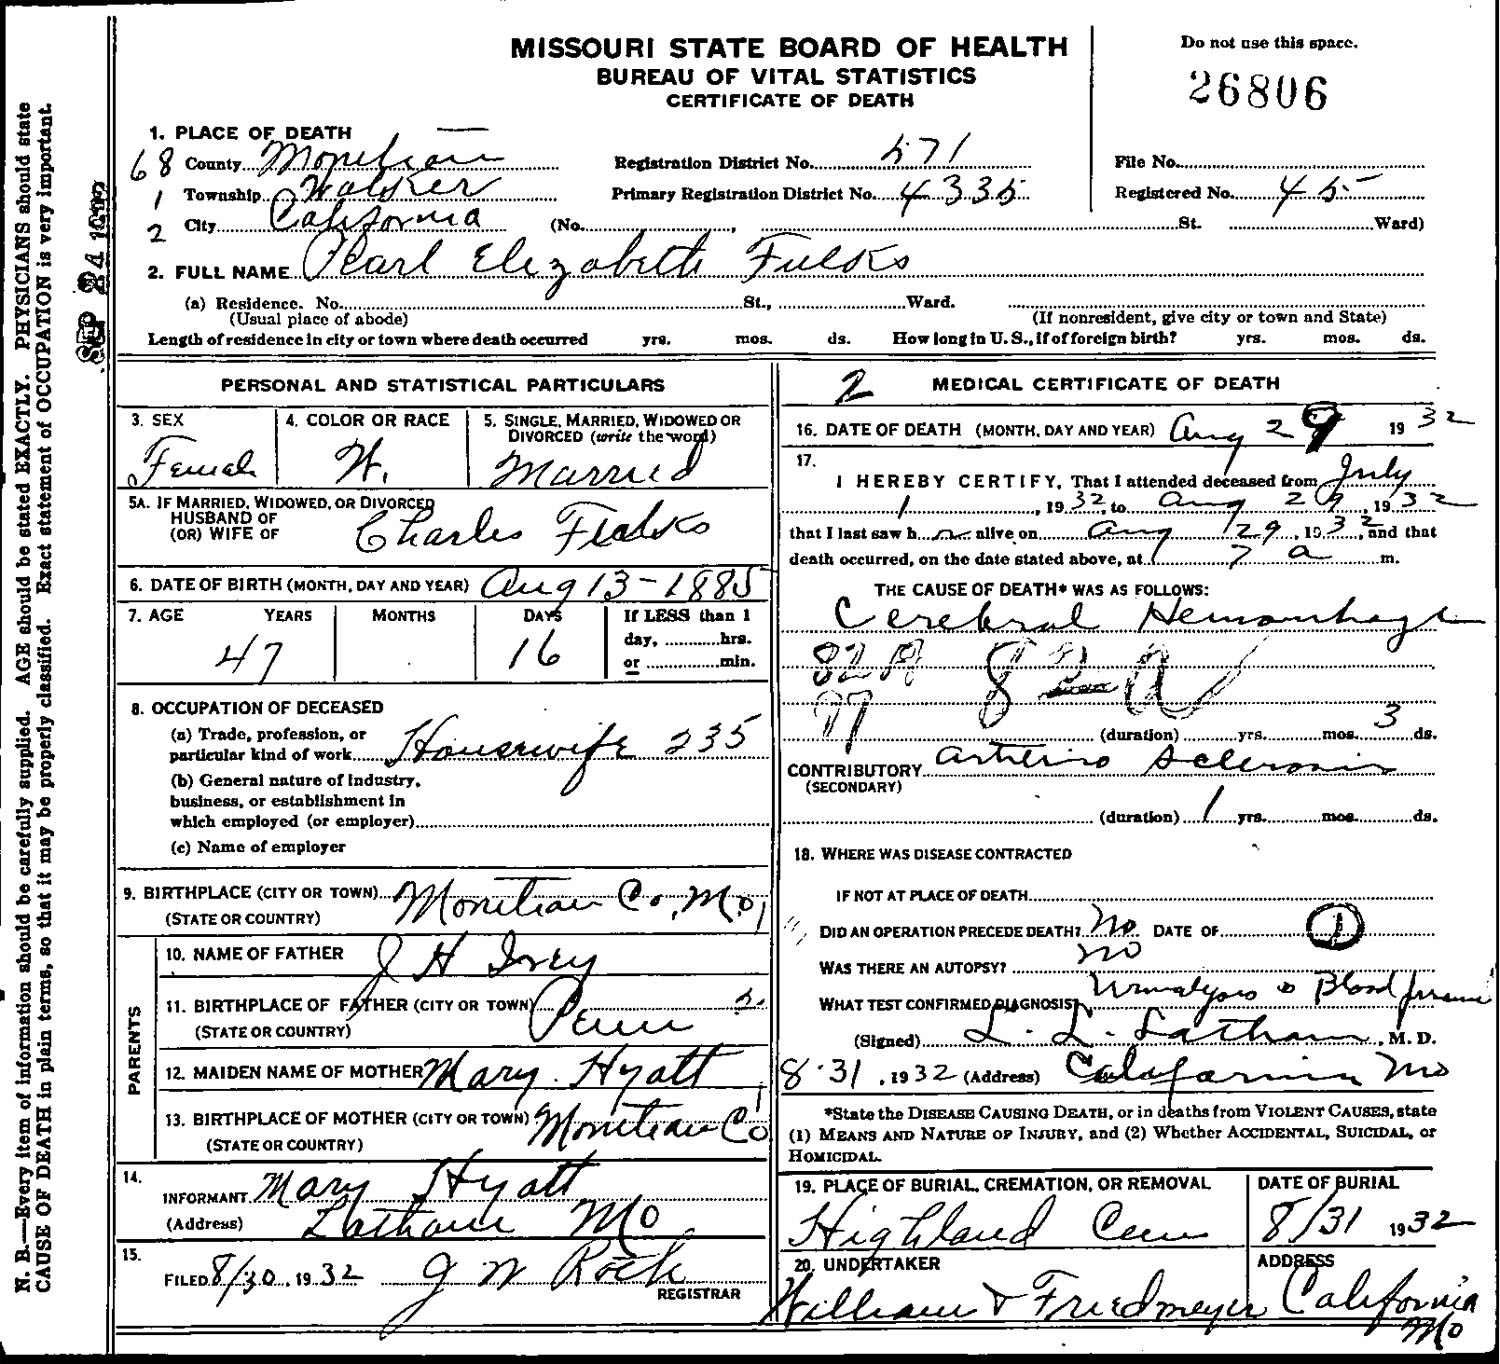 MISSOURI STATE BOARD OF HEALTH
BUREAU OF VITAL STATISTICS
CERTIFICATE OF DEATH
Do not use this space.
26806
1. PLACE OF DEATH
68 County Moniteau Registration District No. 571 File No.
1 Township Walker Primary Registration District No. 4335 Registered No. 45
2 City California (No. , St. Ward)
2. FULL NAME Pearl Elizabeth Fulks
(a) Residence. No. St., Ward.
(Usual place of abode) (If nonresident, give city or town and State)
Length of residence in city or town where death occurred yrs. mos. ds. How long in U. S., if of foreign birth? yrs. mos. ds.
PERSONAL AND STATISTICAL PARTICULARS
3. SEX 4. COLOR OR RACE 5. SINGLE, MARRIED, WIDOWED OR
DIVORCED (write the word)
Female W. Married
5A. IF MARRIED, WIDOWED, OR DIVORCED
HUSBAND OF
(OR) WIFE OF Charles Fulks
6. DATE OF BIRTH (MONTH, DAY AND YEAR) Aug 13-1885
7. AGE YEARS MONTHS DAYS If LESS than 1
day, hrs.
or min.
47 16
8. OCCUPATION OF DECEASED
(a) Trade, profession, or
particular kind of work Housewife 235
(b) General nature of industry,
business, or establishment in
which employed (or employer)
(c) Name of employer
9. BIRTHPLACE (CITY OR TOWN) Moniteau Co, Mo,
(STATE OR COUNTRY)
PARENTS
10. NAME OF FATHER J H Ivey
11. BIRTHPLACE OF FATHER (CITY OR TOWN)
(STATE OR COUNTRY) Penn
12. MAIDEN NAME OF MOTHER Mary Hyatt
13. BIRTHPLACE OF MOTHER (CITY OR TOWN) Moniteau Co
(STATE OR COUNTRY)
14.
INFORMANT Mary Hyatt
(Address) Latham Mo
15.
FILED 8/30, 1932 J W Roth
REGISTRAR
2 MEDICAL CERTIFICATE OF DEATH
16. DATE OF DEATH (MONTH, DAY AND YEAR) Aug 29 1932
17.
I HEREBY CERTIFY, That I attended deceased from July
1, 1932, to Aug 29, 1932
that I last saw h alive on Aug 29, 1932, and that
death occurred, on the date stated above, at 7 a m.
THE CAUSE OF DEATH* WAS AS FOLLOWS:
Cerebral Hemorrhage
82A 82a
97
(duration) yrs. mos. 3 ds.
CONTRIBUTORY Arterio Sclerosis
(SECONDARY)
(duration) 1 yrs. mos. ds.
18. WHERE WAS DISEASE CONTRACTED
IF NOT AT PLACE OF DEATH
DID AN OPERATION PRECEDE DEATH? No DATE OF 1
WAS THERE AN AUTOPSY? no
WHAT TEST CONFIRMED DIAGNOSIS? Urinalysis & Blood pressure
(Signed) L. L. Latham, M. D.
8-31, 1932 (Address) California Mo
*State the DISEASE CAUSING DEATH, or in deaths from VIOLENT CAUSES, state
(1) MEANS AND NATURE OF INJURY, and (2) Whether ACCIDENTAL, SUICIDAL, or
HOMICIDAL.
19. PLACE OF BURIAL, CREMATION, OR REMOVAL DATE OF BURIAL
Highland Cem 8/31 1932
20. UNDERTAKER ADDRESS
William & Friedmeyer California
Mo
N. B.—Every item of information should be carefully supplied. AGE should be stated EXACTLY. PHYSICIANS should state
CAUSE OF DEATH in plain terms, so that it may be properly classified. Exact statement of OCCUPATION is very important.
SEP 24 1932